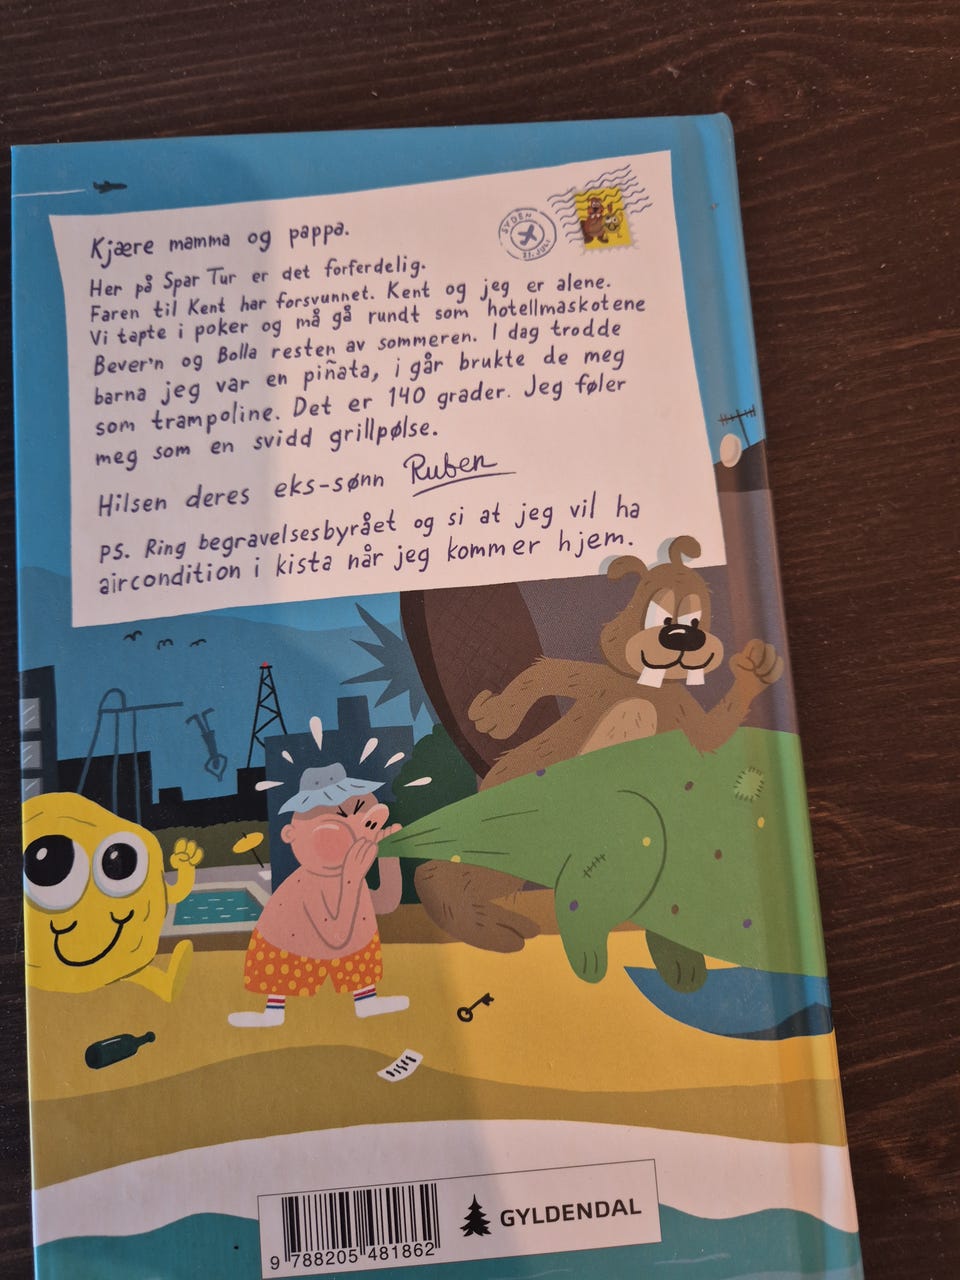 SYDEN
21. JULI
Kjære mamma og pappa.
Her på Spar Tur er det forferdelig.
Faren til Kent har forsvunnet. Kent og jeg er alene.
Vi tapte i poker og må gå rundt som hotellmaskotene
Bever'n og Bolla resten av sommeren. I dag trodde
barna jeg var en piñata, i går brukte de meg
som trampoline. Det er 140 grader. Jeg føler
meg som en svidd grillpølse.
Hilsen deres eks-sønn Ruben
PS. Ring begravelsesbyrået og si at jeg vil ha
aircondition i kista når jeg kommer hjem.
9 788205 481862
GYLDENDAL